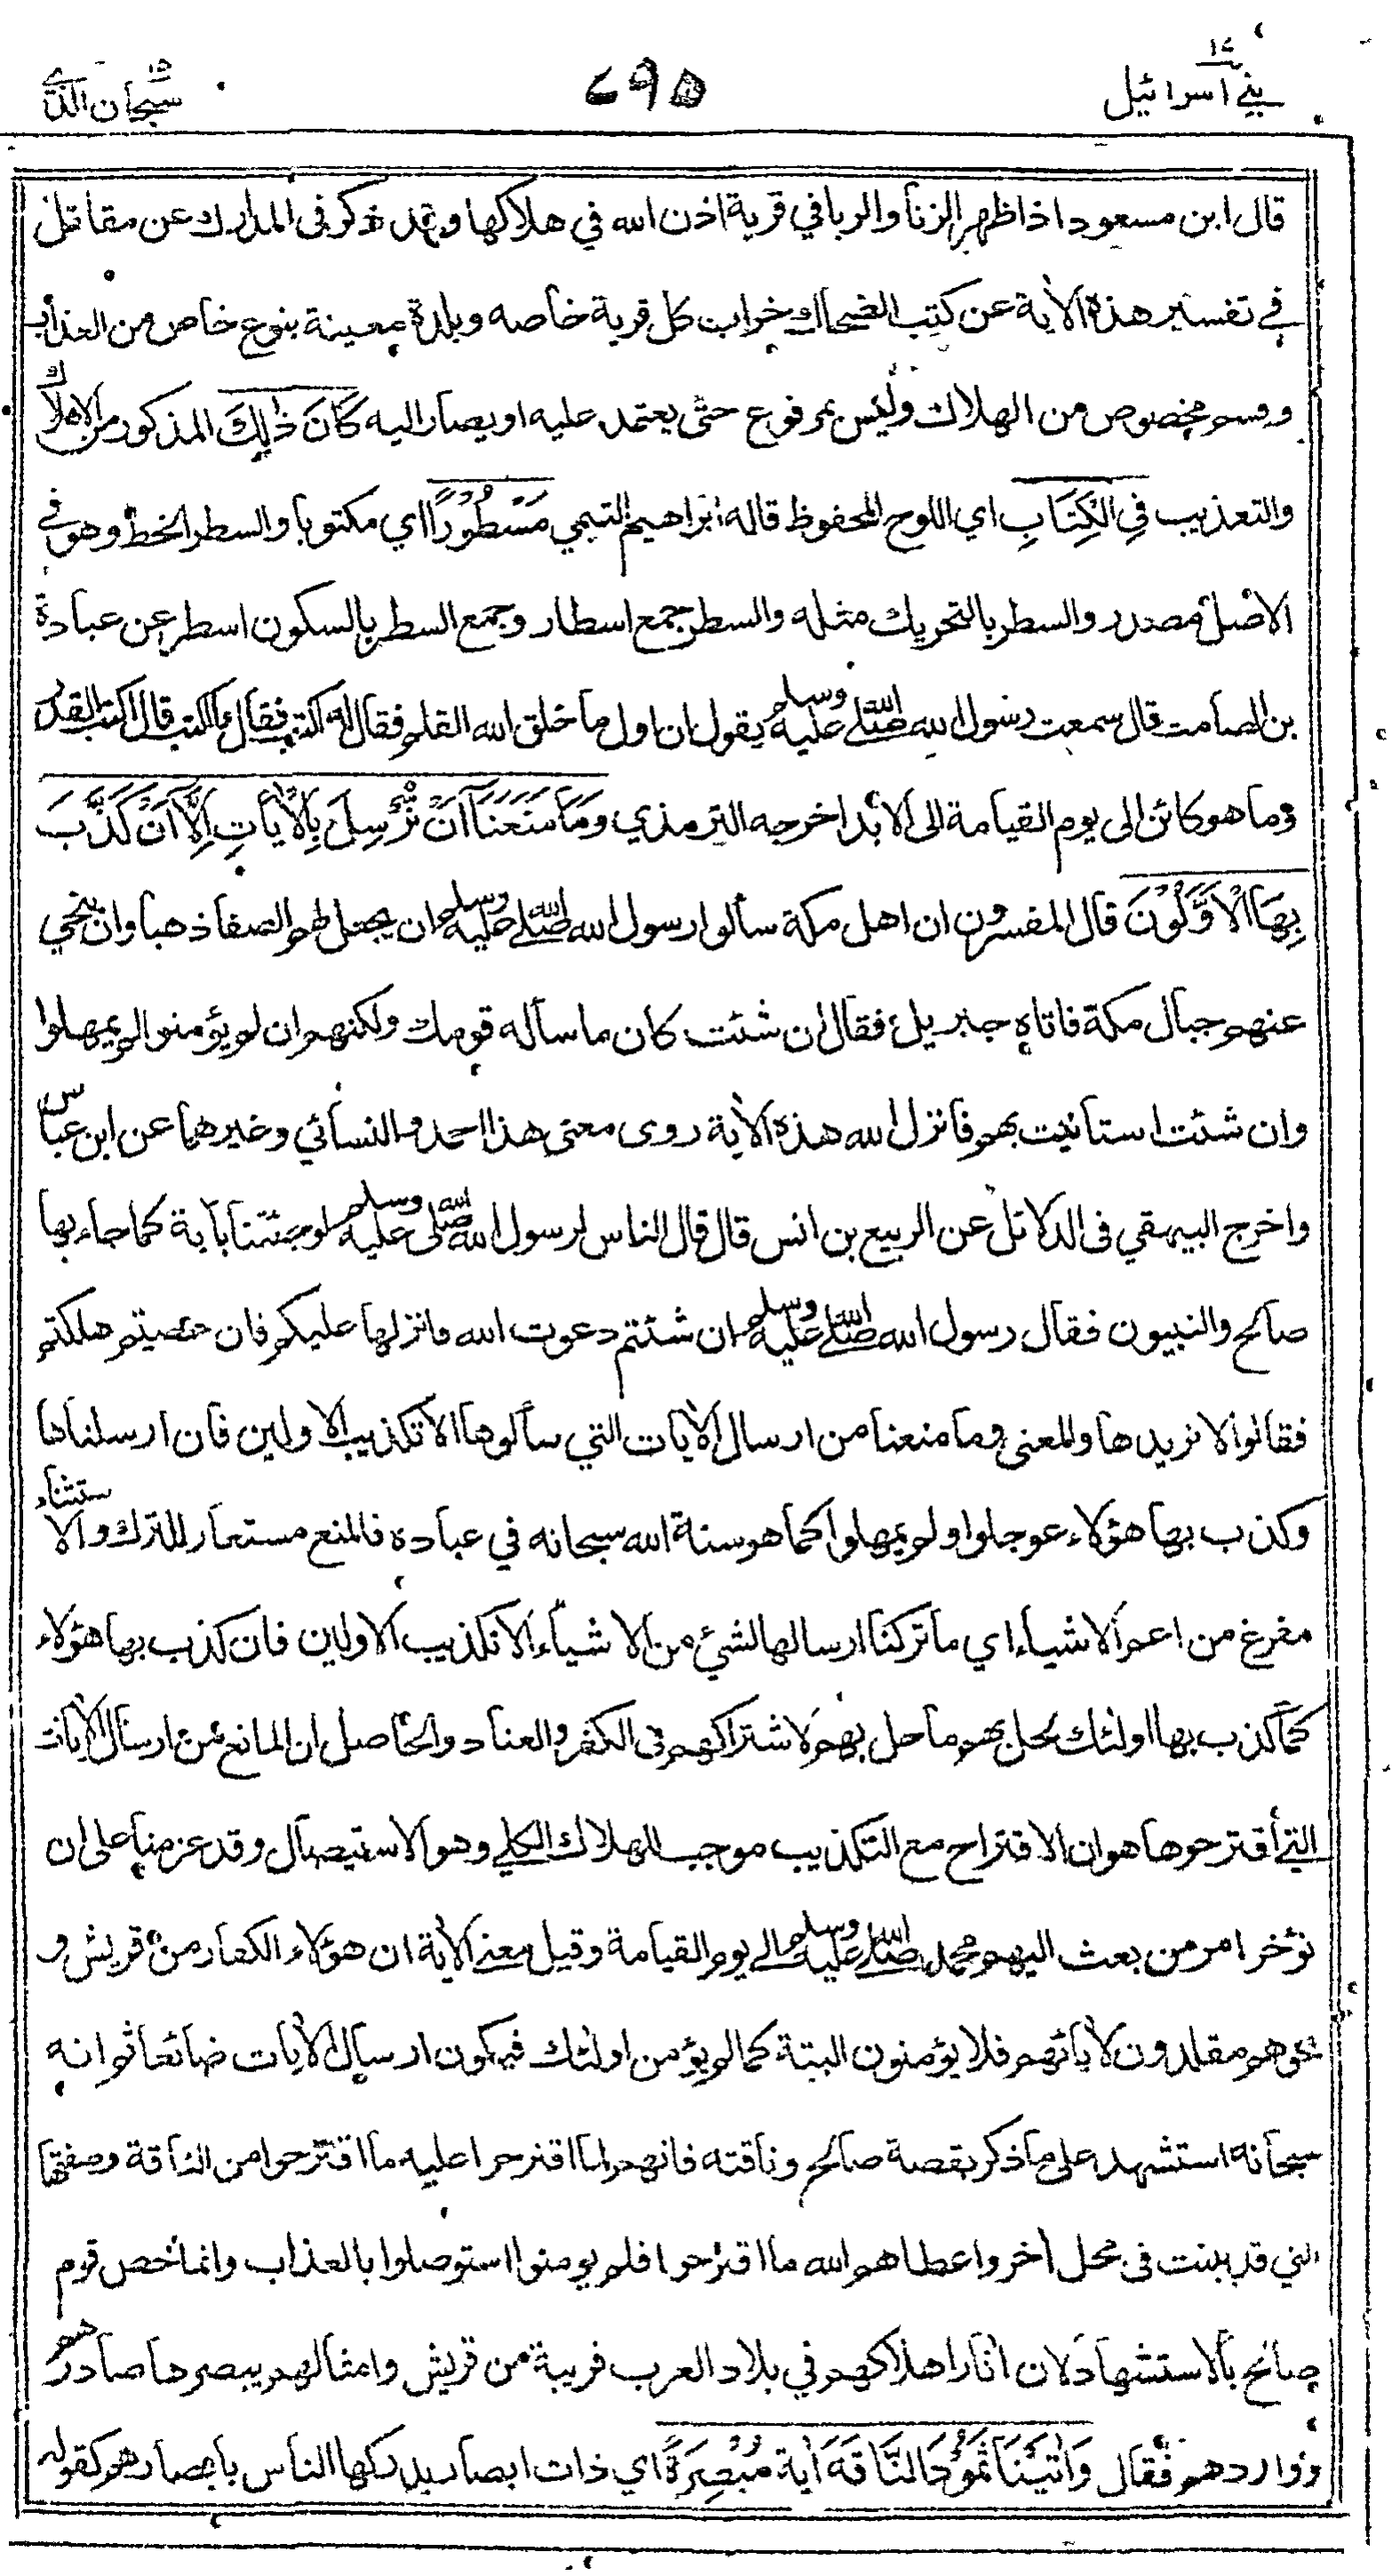 بني اسرائيل ١٧
٧٩٥
سبحان الذي ١٥
قال ابن مسعود اذا ظهر الزنا والربا في قرية اذن الله في هلاكها وقد ذكر في المدارك عن مقاتل
في تفسير هذه الاية عن كتب الضحاك خراب كل قرية خاصه وبلدة معينة بنوع خاص من العذاب
وقسم مخصوص من الهلاك وليس بمرفوع حتى يعتمد عليه او يصار اليه كَانَ ذٰلِكَ المذكور من الاهلاك
والتعذيب فِي الْكِتَابِ اي اللوح المحفوظ قاله ابراهيم التيمي مَسْطُوْرًا اي مكتوبا والسطر الخط وهو في
الاصل مصدر والسطر بالتحريك مثله والسطر جمع اسطار وجمع السطر بالسكون اسطر عن عبادة
بن الصامت قال سمعت رسول الله صلى الله عليه وسلم يقول ان اول ما خلق الله القلم فقال له اكتب فقال ما اكتب قال اكتب القدر
وما هو كائن الى يوم القيامة الى الابد اخرجه الترمذي وَمَا مَنَعَنَا اَنْ نُّرْسِلَ بِالْاٰيَاتِ اِلَّا اَنْ كَذَّبَ
بِهَا الْاَوَّلُوْنَ قال المفسرون ان اهل مكة سألوا رسول الله صلى الله عليه وسلم ان يجعل لهم الصفا ذهبا وان ينحي
عنهم جبال مكة فاتاه جبريل فقال ان شئت كان ما سأله قومك ولكنهم ان لم يؤمنوا لم يمهلوا
وان شئت استانيت بهم فانزل الله هذه الاية روى معنى هذا احمد والنسائي وغيرهما عن ابن عباس
واخرج البيهقي في الدلائل عن الربيع بن انس قال قال الناس لرسول الله صلى الله عليه وسلم لو جئتنا بآية كما جاء بها
صالح والنبيون فقال رسول الله صلى الله عليه وسلم ان شئتم دعوت الله فانزلها عليكم فان عصيتم هلكتم
فقالوا لا نريدها والمعنى وما منعنا من ارسال الايات التي سألوها الا تكذيب الاولين فان ارسلناها
وكذب بها هؤلاء عوجلوا ولم يمهلوا كما هو سنة الله سبحانه في عباده فالمنع مستعار للترك والاستثناء
مفرغ من اعم الاشياء اي ما تركنا ارسالها لشيء من الاشياء الا تكذيب الاولين فان كذب بها هؤلاء
كما كذب بها اولئك يحل بهم ما حل بهم لاشتراكهم في الكفر والعناد والحاصل ان المانع من ارسال الايات
التي أقترحوها هو ان الاقتراح مع التكذيب موجب للهلاك الكلي وهو الاستيصال وقد عزمنا على ان
نؤخر امر من بعث اليهم محمد صلى الله عليه وسلم الى يوم القيامة وقيل معنى الاية ان هؤلاء الكفار من قريش و
نحوهم مقلدون لابائهم فلا يؤمنون البتة كما لم يؤمن اولئك فيكون ارسال الايات ضائعا ثم انه
سبحانه استشهد على ما ذكر بقصة صالح وناقته فانهم لما اقترحوا عليه ما اقترحوا من الناقة وصفتها
التي قد بينت في محل اخر واعطاهم الله ما اقترحوا فلم يومنوا استوصلوا بالعذاب وانما خص قوم
صالح بالاستشهاد لان اثار اهلاكهم في بلاد العرب قريبة من قريش وامثالهم يبصرها صادرهم
وواردهم فقال وَاٰتَيْنَا ثَمُوْدَ النَّاقَةَ اٰية مُبْصِرَةً اي ذات ابصار يدركها الناس بابصارهم كقوله